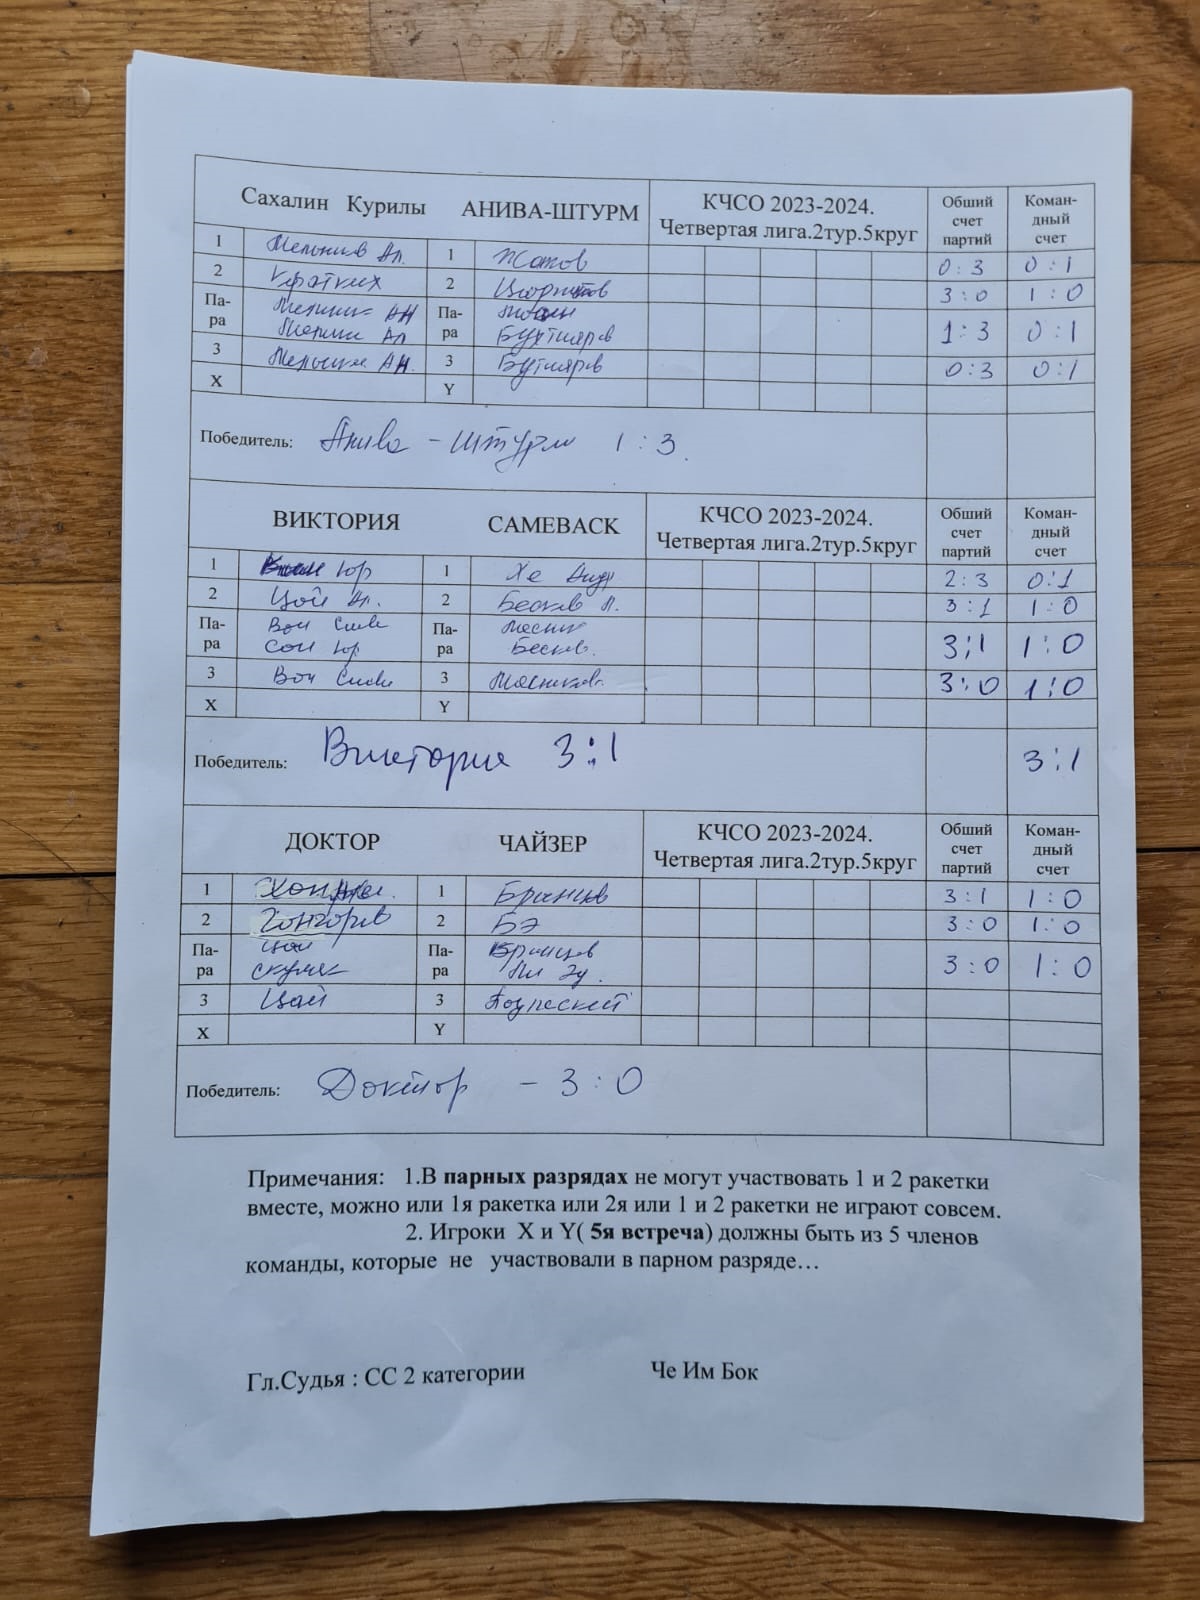 Сахалин Курилы АНИВА-ШТУРМ КЧСО 2023-2024. Четвертая лига.2тур.5круг Обший счет партий Коман-дный счет
1 Ал. 1 0:3 0:1
2 Кратких 2 3:0 1:0
Па-ра АН Па-ра
Ал Бухтияров 1:3 0:1
3 АН. 3 Бутияров 0:3 0:1
X Y
Победитель: Анива - штурм 1:3.
ВИКТОРИЯ САМЕВАСК КЧСО 2023-2024. Четвертая лига.2тур.5круг Обший счет партий Коман-дный счет
1 Юр 1 Хе 2:3 0:1
2 Цой Ал. 2 Бесков 3:1 1:0
Па-ра Вон Па-ра
Сон Юр Бесков. 3:1 1:0
3 Вон 3 3:0 1:0
X Y
Победитель: Виктория 3:1 3:1
ДОКТОР ЧАЙЗЕР КЧСО 2023-2024. Четвертая лига.2тур.5круг Обший счет партий Коман-дный счет
1 1 Бранцев 3:1 1:0
2 2 БЭ 3:0 1:0
Па-ра Цой Па-ра Бранцев
3:0 1:0
3 Цой 3
X Y
Победитель: Доктор - 3:0
Примечания: 1.В парных разрядах не могут участвовать 1 и 2 ракетки
вместе, можно или 1я ракетка или 2я или 1 и 2 ракетки не играют совсем.
2. Игроки X и Y( 5я встреча) должны быть из 5 членов
команды, которые не участвовали в парном разряде…
Гл.Судья : СС 2 категории Че Им Бок